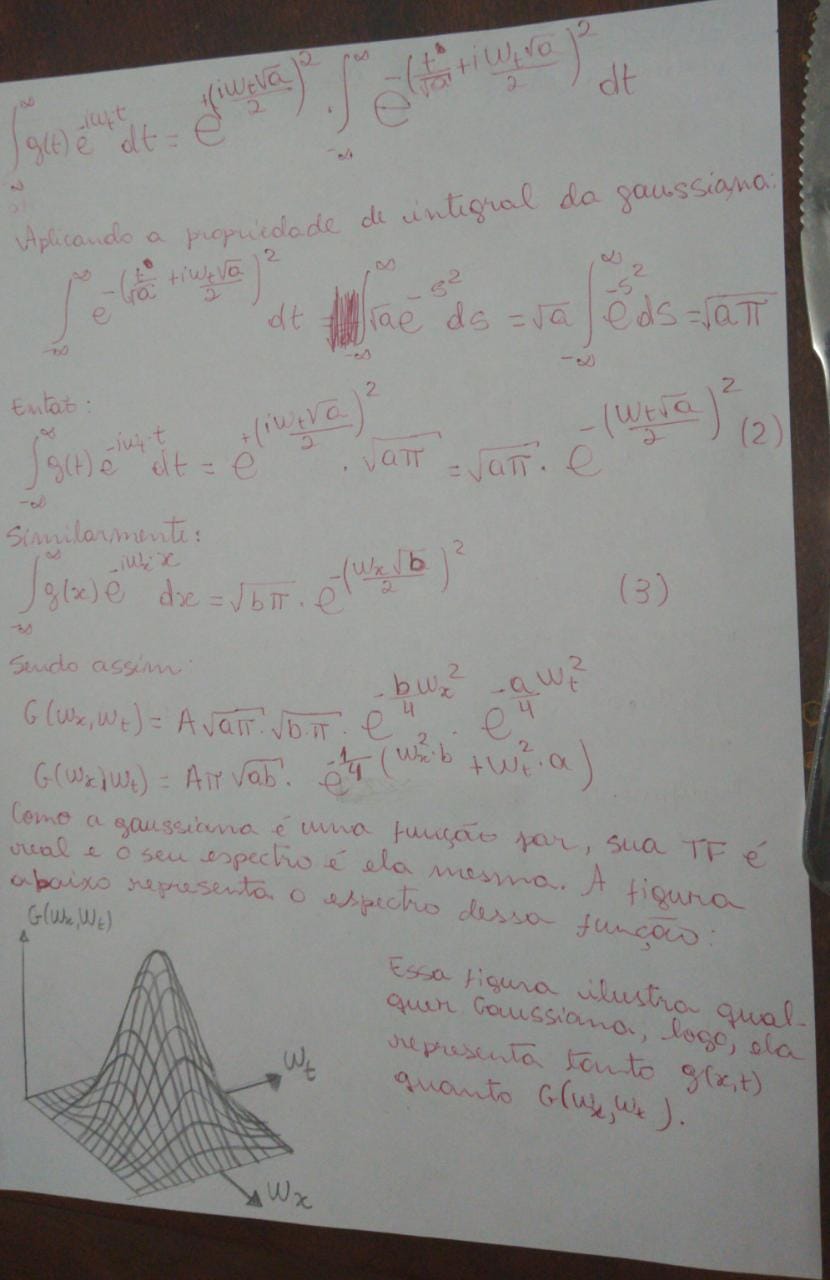 ∫_{-∞}^{∞} g(t) e^{-iω_t t} dt = e^{+(iω_t√a/2)^2} . ∫_{-∞}^{∞} e^{-(t/√a + iω_t√a/2)^2} dt
Aplicando a propriedade de integral da gaussiana:
∫_{-∞}^{∞} e^{-(t/√a + iω_t√a/2)^2} dt = ∫_{-∞}^{∞} √a e^{-s^2} ds = √a ∫_{-∞}^{∞} e^{-s^2} ds = √aπ
Entao:
∫_{-∞}^{∞} g(t) e^{-iω_t·t} dt = e^{+(iω_t√a/2)^2} . √aπ = √aπ . e^{-(ω_t√a/2)^2} (2)
Similarmente:
∫_{-∞}^{∞} g(x) e^{-iω_x·x} dx = √bπ . e^{-(ω_x√b/2)^2} (3)
Sendo assim:
G(ω_x,ω_t) = A√aπ.√b.π . e^{-b/4 ω_x^2} . e^{-a/4 ω_t^2}
G(ω_x,ω_t) = Aπ√ab . e^{-1/4 (ω_x^2·b + ω_t^2·a)}
Como a gaussiana é uma função par, sua TF é
real e o seu espectro é ela mesma. A figura
abaixo representa o espectro dessa função:
G(ω_x,ω_t)
ω_t
ω_x
Essa figura ilustra qual-
quer Gaussiana, logo, ela
representa tanto g(x,t)
quanto G(ω_x,ω_t).